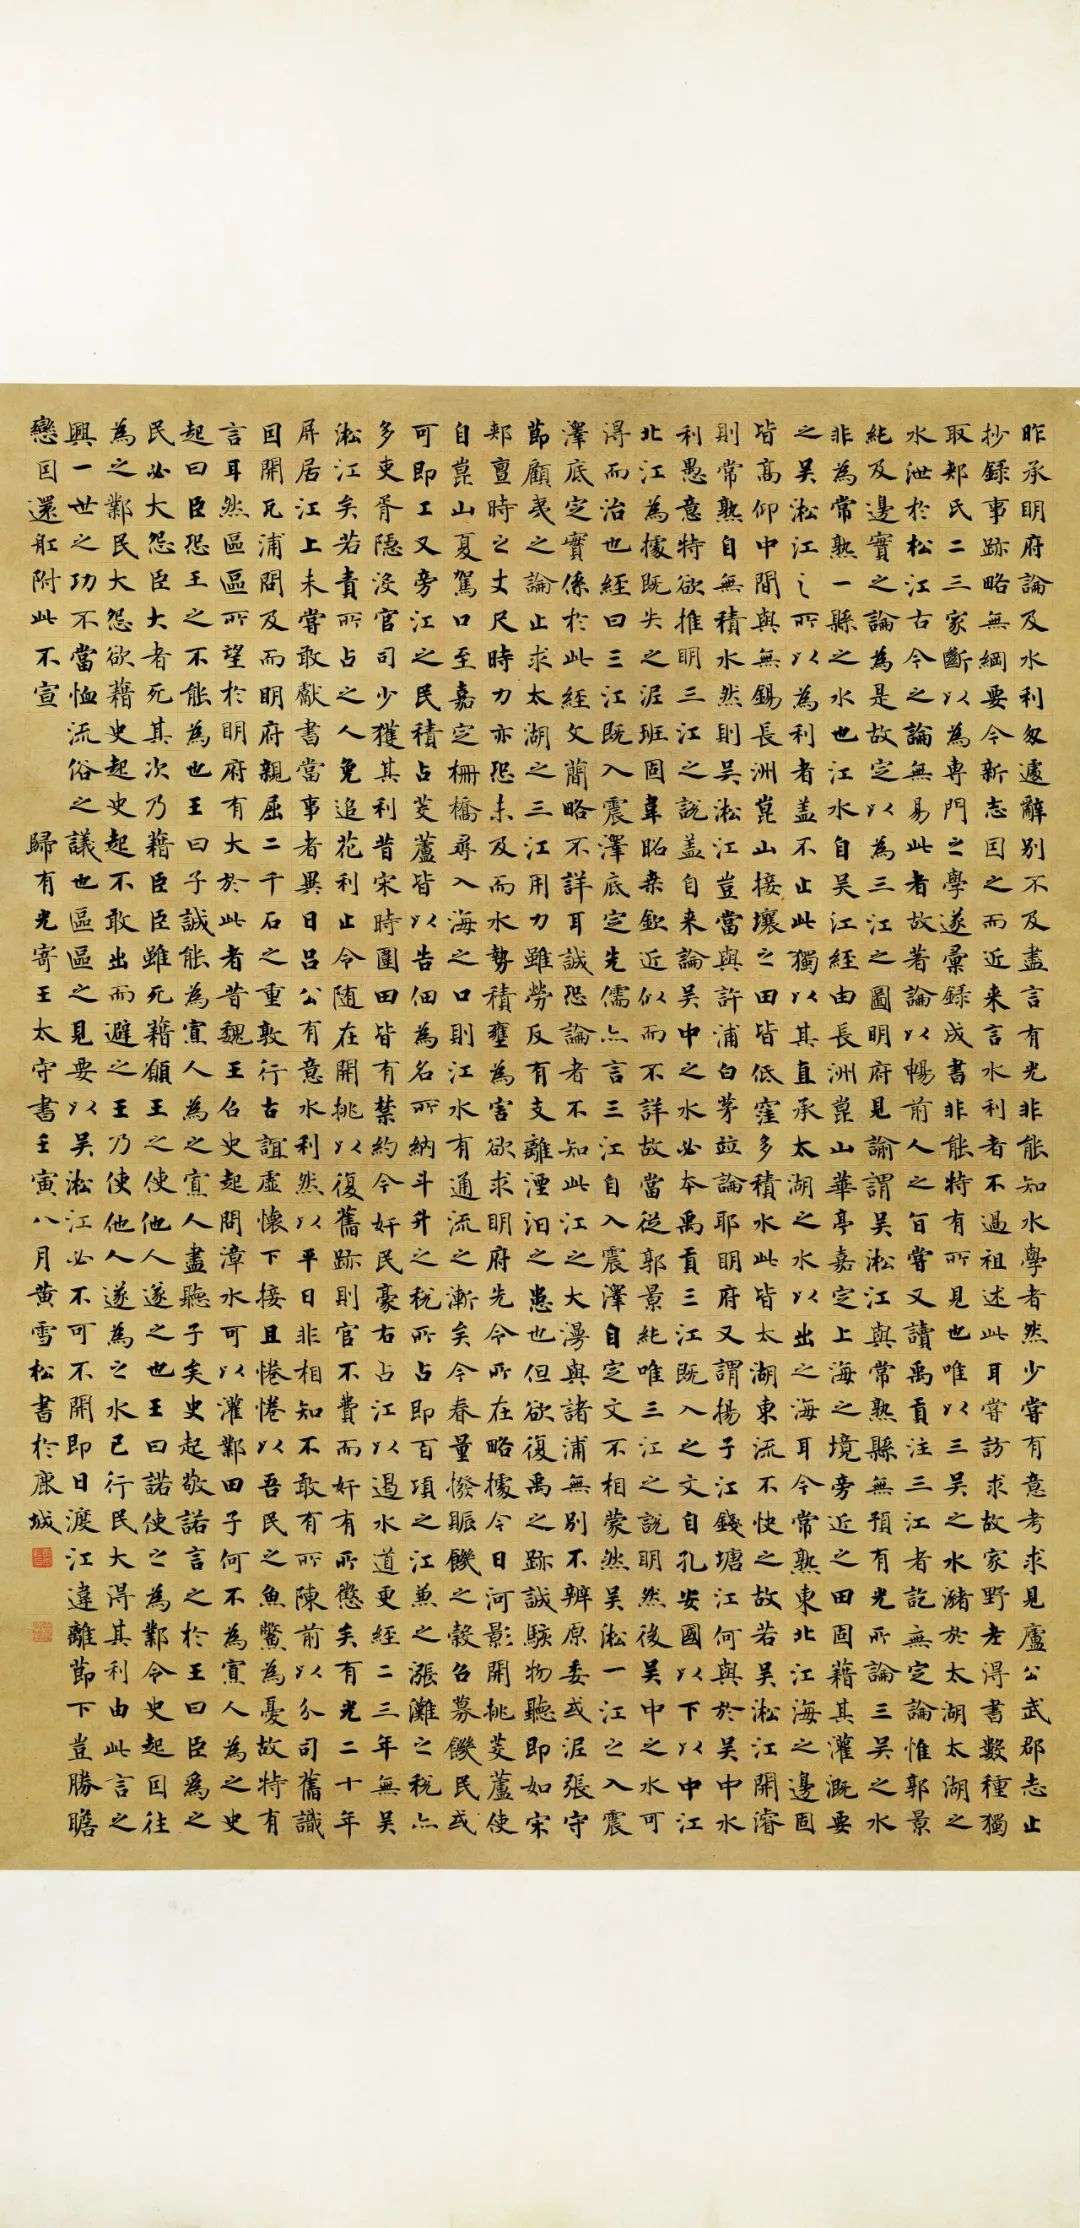 昨承明府論及水利匆遽辭別不及盡言有光非能知水學者然少嘗有意考求見盧公武郡志止
抄録事跡略無綱要今新志因之而近来言水利者不過祖述此耳嘗訪求故家野老得書數種獨
取郟氏二三家斷以為專門之學遂彙録成書非能特有所見也唯以三吴之水瀦於太湖太湖之
水泄於松江古今之論無易此者故著論以暢前人之旨嘗又讀禹貢注三江者訖無定論惟郭景
純及邊實之論為是故定以為三江之圖明府見諭謂吴淞江與常熟縣無預有光所論三吴之水
非為常熟一縣之水也江水自吴江經由長洲崑山華亭嘉定上海之境旁近之田固藉其灌溉要
之吴淞江之所以為利者盖不止此獨以其直承太湖之水以出之海耳今常熟東北江海之邊固
皆高仰中間與無錫長洲崑山接壤之田皆低窪多積水此皆太湖東流不快之故若吴淞江開濬
則常熟自無積水然則吴淞江豈當與許浦白茅竝論耶明府又謂揚子江錢塘江何與於吴中水
利愚意特欲推明三江之說盖自来論吴中之水必本禹貢三江既入之文自孔安國以下以中江
北江為據既失之泥班固韋昭桑欽近似而不詳故當從郭景純唯三江之說明然後吴中之水可
得而治也經曰三江既入震澤底定先儒亦言三江自入震澤自定文不相蒙然吴淞一江之入震
澤底定實係於此經文簡略不詳耳誠恐論者不知此江之大漫與諸浦無別不辨原委或泥張守
節顧夷之論止求太湖之三江用力雖勞反有支離湮汩之患也但欲復禹之跡誠駭物聽即如宋
郟亶時之丈尺時力亦恐未及而水勢積壅為害欲求明府先令所在略據今日河影開挑茭蘆使
自崑山夏駕口至嘉定柵橋尋入海之口則江水有通流之漸矣今春量撥賑饑之穀召募饑民或
可即工又旁江之民積占茭蘆皆以告佃為名所納斗升之稅所占即百頃之江兼之漲灘之稅亦
多吏胥隱没官司少獲其利昔宋時圍田皆有禁約今奸民豪右占江以遏水道更經二三年無吴
淞江矣若責所占之人免追花利止令随在開挑以復舊跡則官不費而奸有所懲矣有光二十年
屏居江上未嘗敢獻書當事者異日吕公有意水利然以平日非相知不敢有所陳前以分司舊識
因開瓦浦問及而明府親屈二千石之重敦行古誼虚懷下接且惓惓以吾民之魚鱉為憂故特有
言耳然區區所望於明府有大於此者昔魏王召史起問漳水可以灌鄴田子何不為寡人為之史
起曰臣恐王之不能為也王曰子誠能為寡人為之寡人盡聽子矣史起敬諾言之於王曰臣為之
民必大怨臣大者死其次乃藉臣臣雖死藉願王之使他人遂之也王曰諾使之為鄴令史起因往
為之鄴民大怨欲藉史起史起不敢出而避之王乃使他人遂為之水已行民大得其利由此言之
興一世之功不當恤流俗之議也區區之見要以吴淞江必不可不開即日渡江違離節下豈勝瞻
戀因還舡附此不宣 歸有光寄王太守書壬寅八月黄雪松書於鹿城